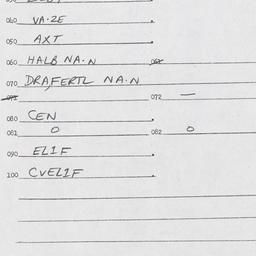 040 VA·ZE .
050 AXT .
060 HALB NA·N
070 DRAFERTL NA·N
072 —
080 CEN .
081 0 082 0
090 ELIF .
100 CVELIF .